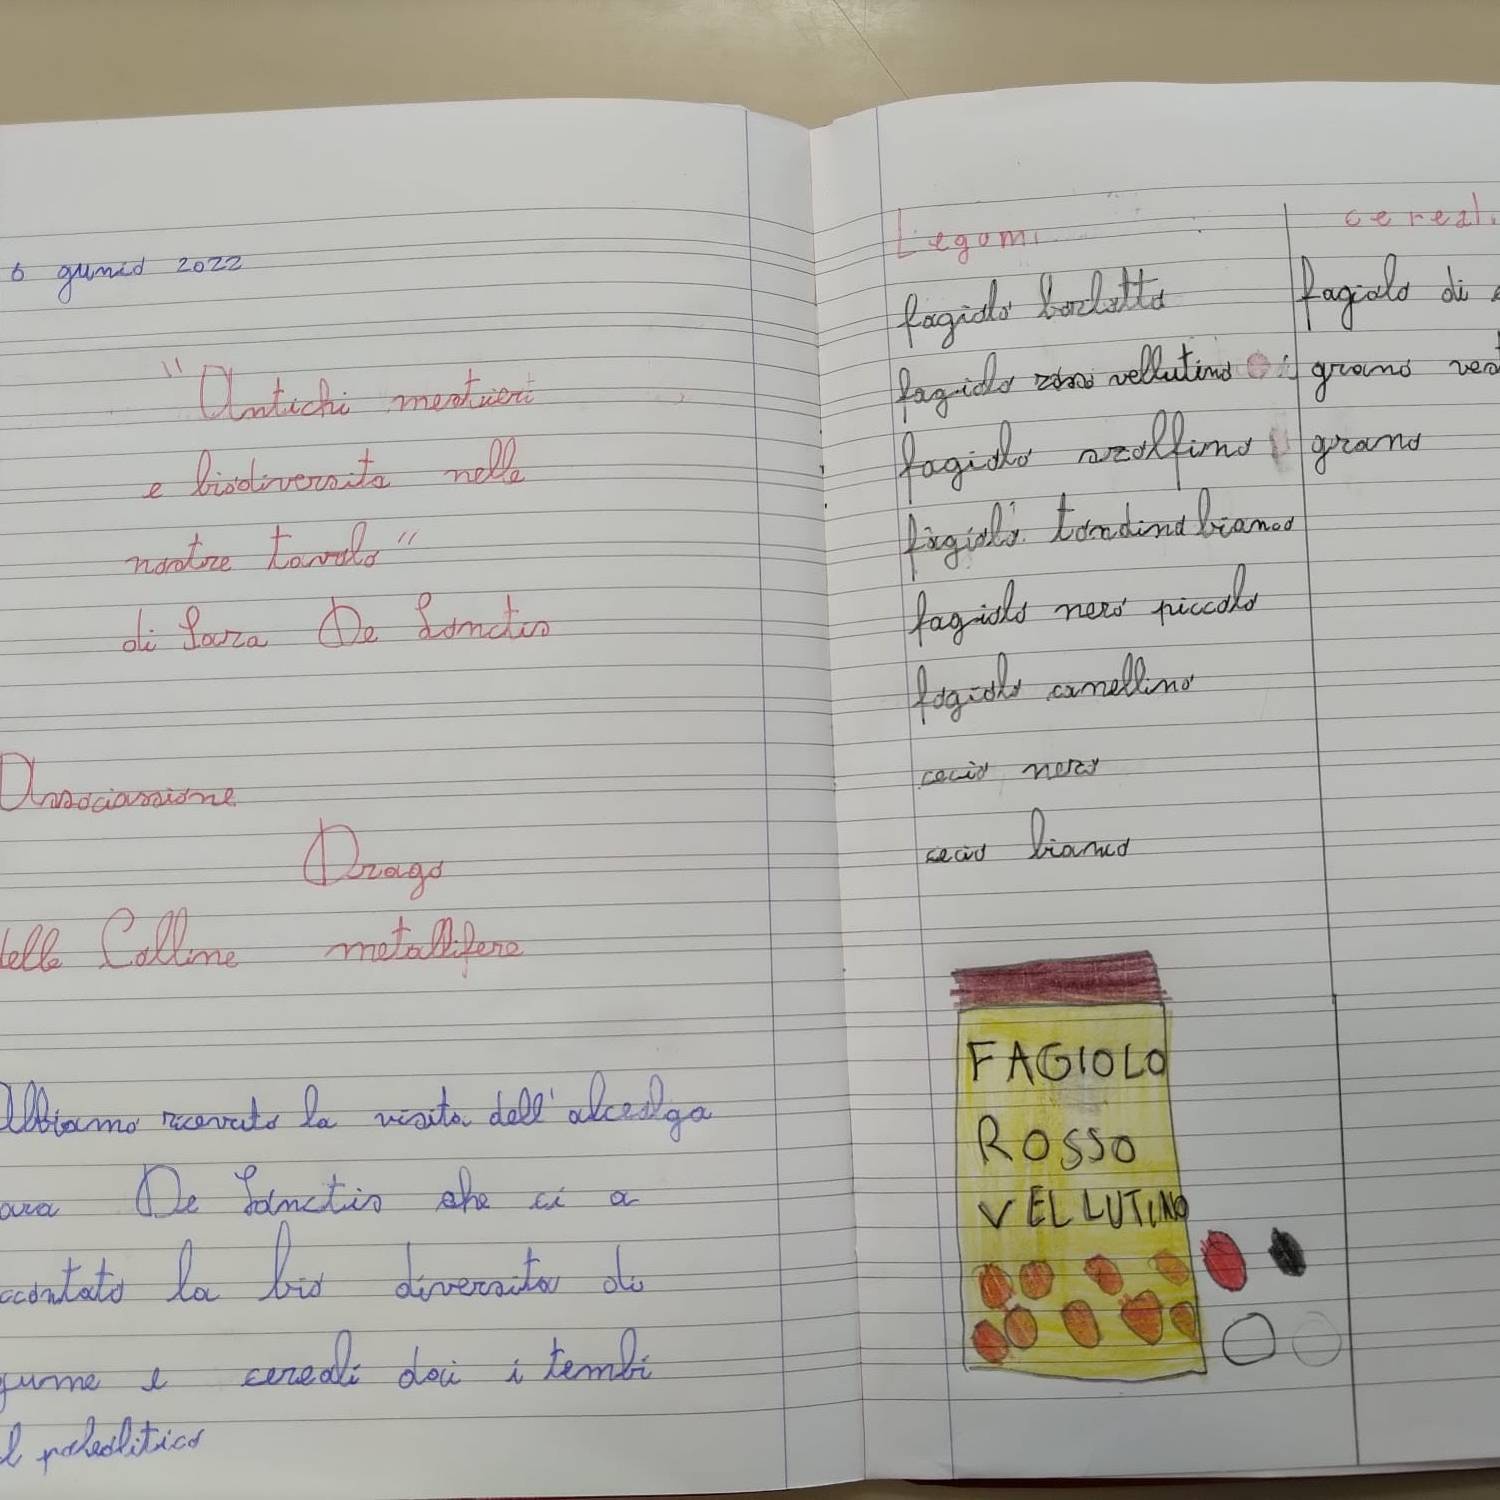 6 gunio 2022
"Antichi mestieri
e biodiversita nelle
nostre tavolo"
di Sara De Sanctis
Associassione
Drago
delle Colline metallifere
Abbiamo ricevuto la visita dell'
De Sanctis che ci a
ccontato la bio diversita di
gume e cereali dai i tembi
l paleolitico
Legumi
fagiolo borlotto
fagiolo rosso vellutino
fagiolo azolfino
fagiolo tondino bianco
fagiolo nero piccolo
fagiolo canellino
cecio nero
cecio bianco
cereali
fagiolo di
grano
grano
FAGIOLO
ROSSO
VELLUTINO